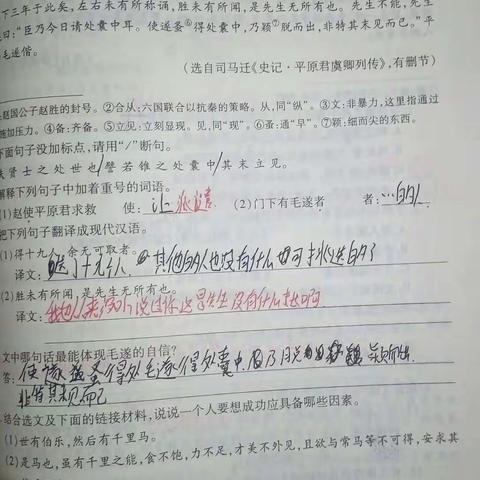 下三年于此矣，左右未有所称诵，胜未有所闻，是先生无所有也。先生不能，先生
曰：“臣乃今日请处囊中耳。使遂蚤⑥得处囊中，乃颖⑦脱而出，非特其末见而已。”平
毛遂偕。
(选自司马迁《史记·平原君虞卿列传》，有删节)
赵国公子赵胜的封号。②合从：六国联合以抗秦的策略。从，同“纵”。③文：非暴力，这里指通过
施加压力。④备：齐备。⑤立见：立刻显现。见，同“现”。⑥蚤：通“早”。⑦颖：细而尖的东西。
下面句子没加标点，请用“/”断句。
夫贤士之处世也/譬若锥之处囊中/其末立见。
解释下列句子中加着重号的词语。
(1)赵使平原君求救 使：让 派遣 (2)门下有毛遂者 者：…的人
把下列句子翻译成现代汉语。
(1)得十九人，余无可取者。
译文：选了十九个人，其他的人也没有什么可挑选的了
(2)胜未有所闻，是先生无所有也。
译文：我也从来没听说过你 是先生没有什么
文中哪句话最能体现毛遂的自信？
答：使遂蚤得处囊中，乃颖脱而出
非特其末见而已
结合选文及下面的链接材料，说说一个人要想成功应具备哪些因素。
(1)世有伯乐，然后有千里马。
(2)是马也，虽有千里之能，食不饱，力不足，才美不外见，且欲与常马等不可得，安求其